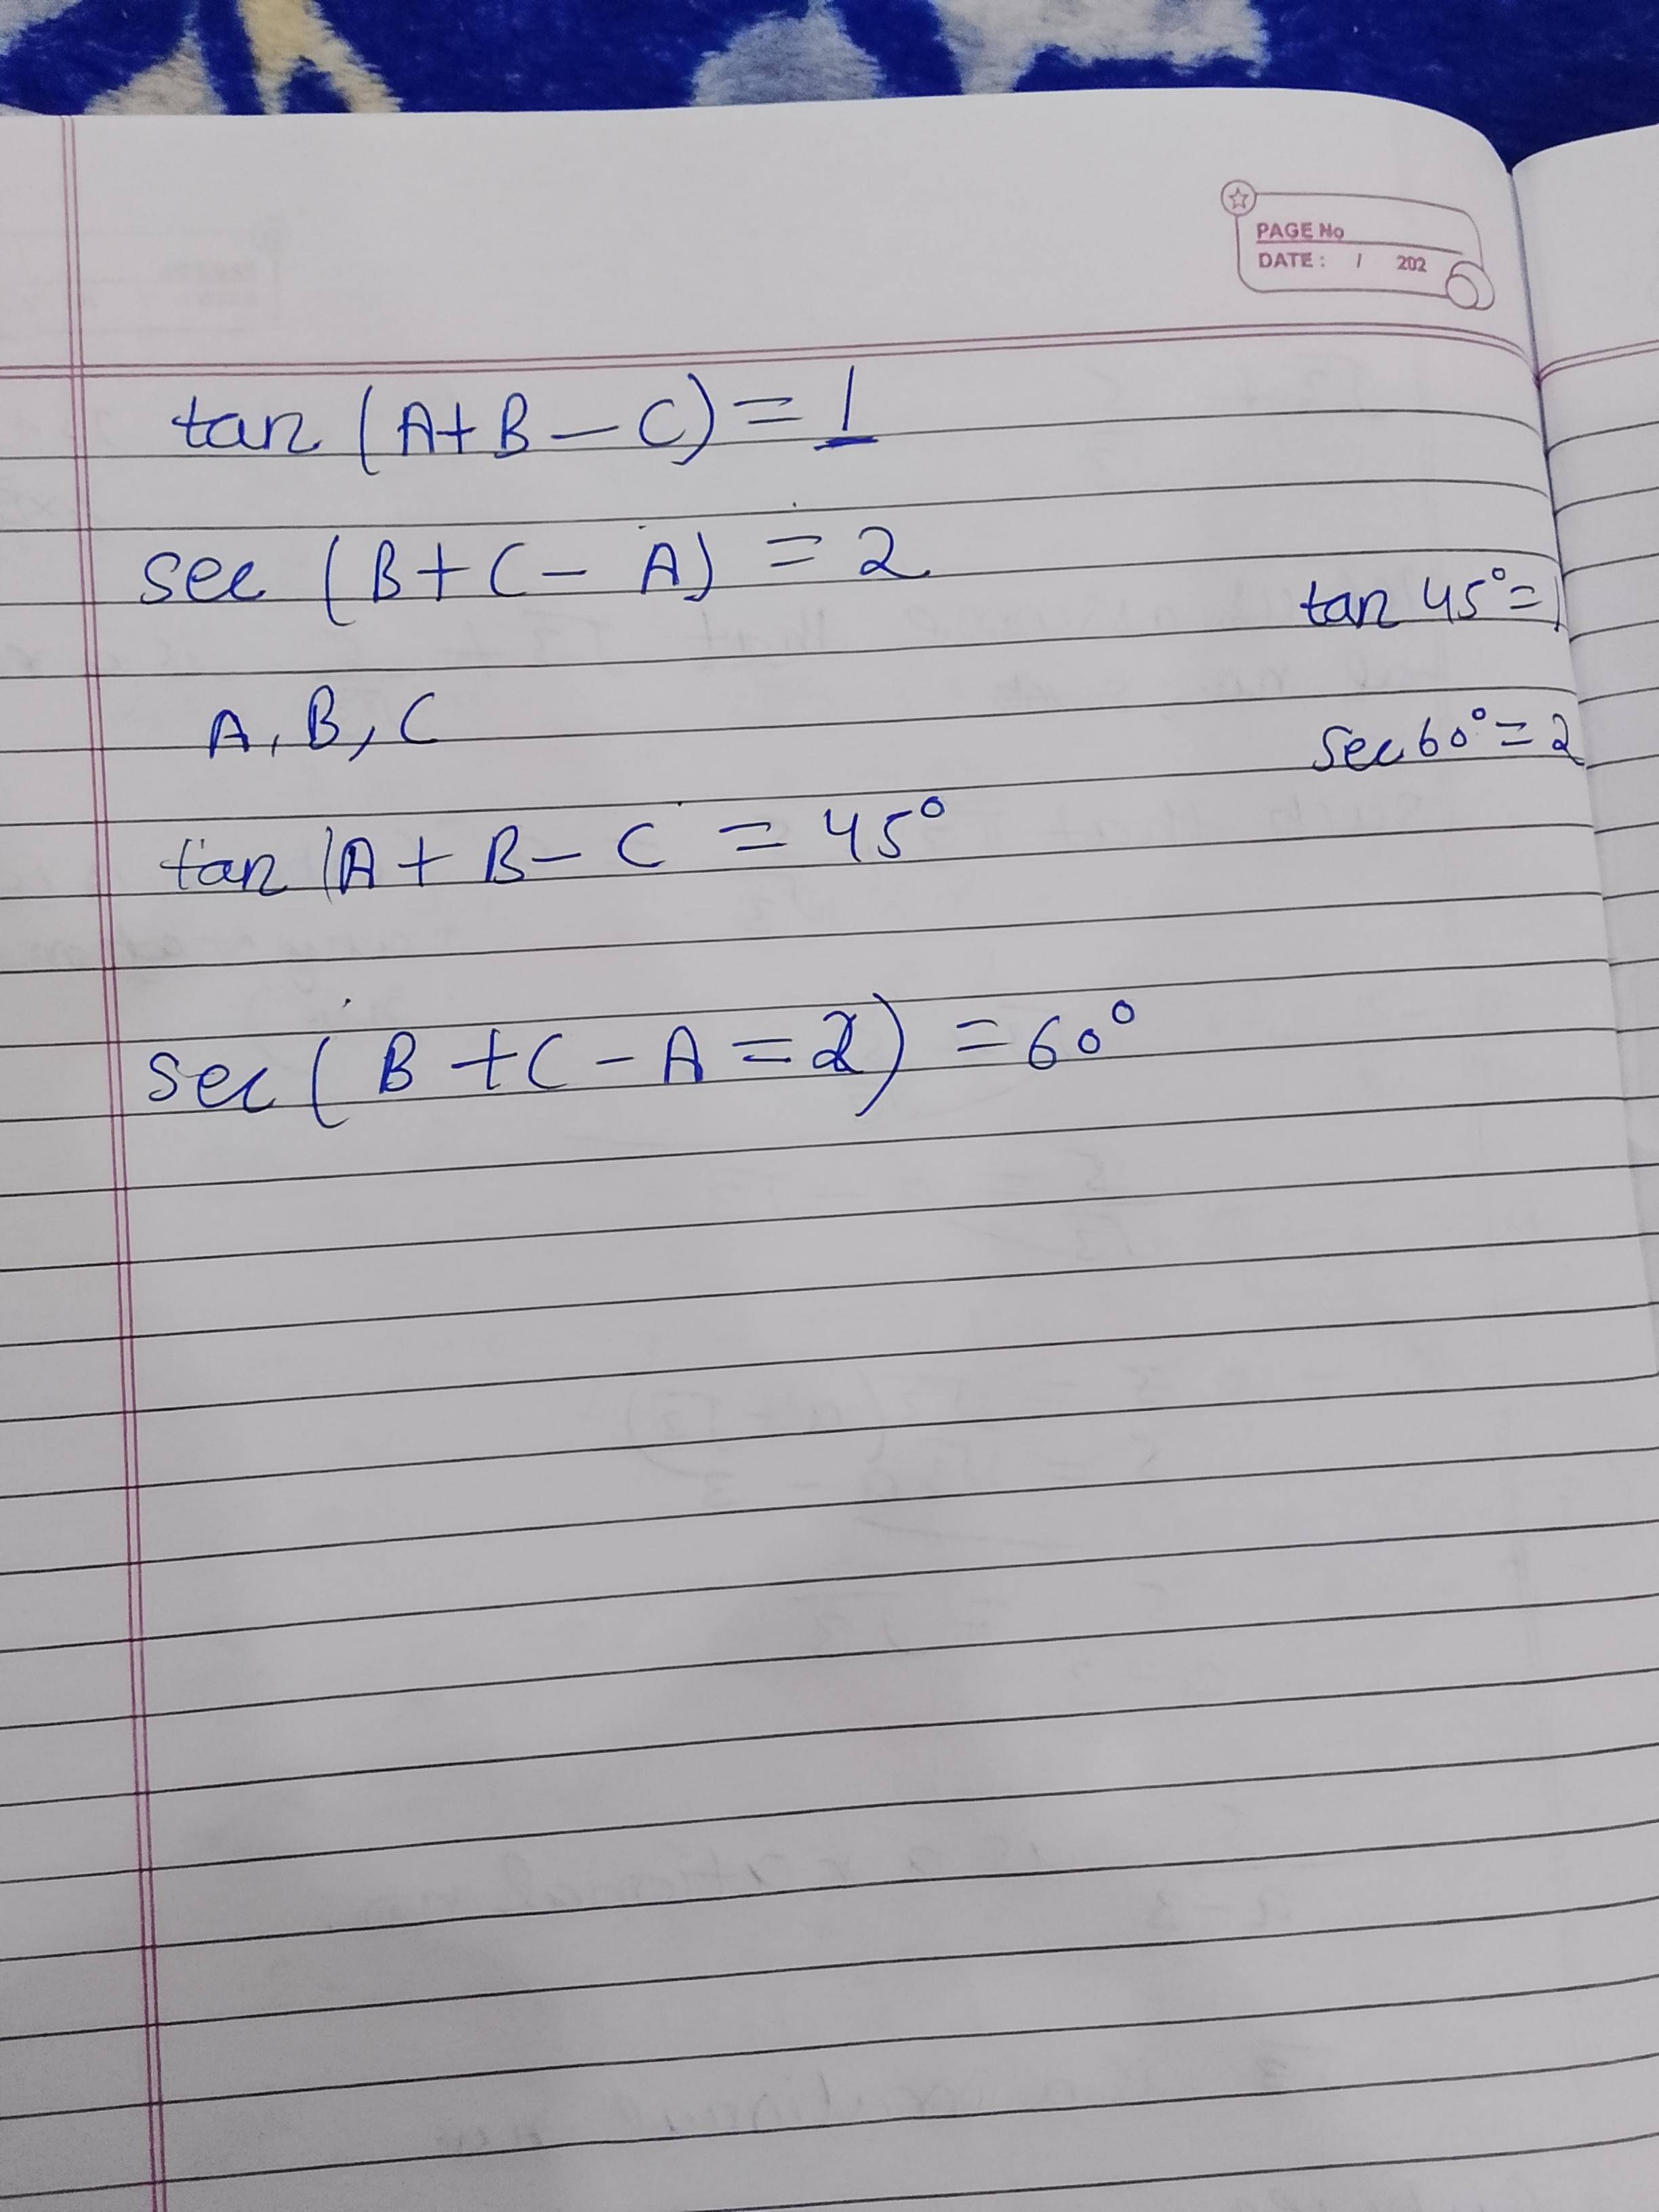 PAGE No
DATE : / 202
tan (A+B-C) = 1
sec (B+C- A) = 2
tan 45°=1
A, B, C
sec 60° = 2
tan (A + B - C = 45°
sec ( B + C - A = 2) = 60°